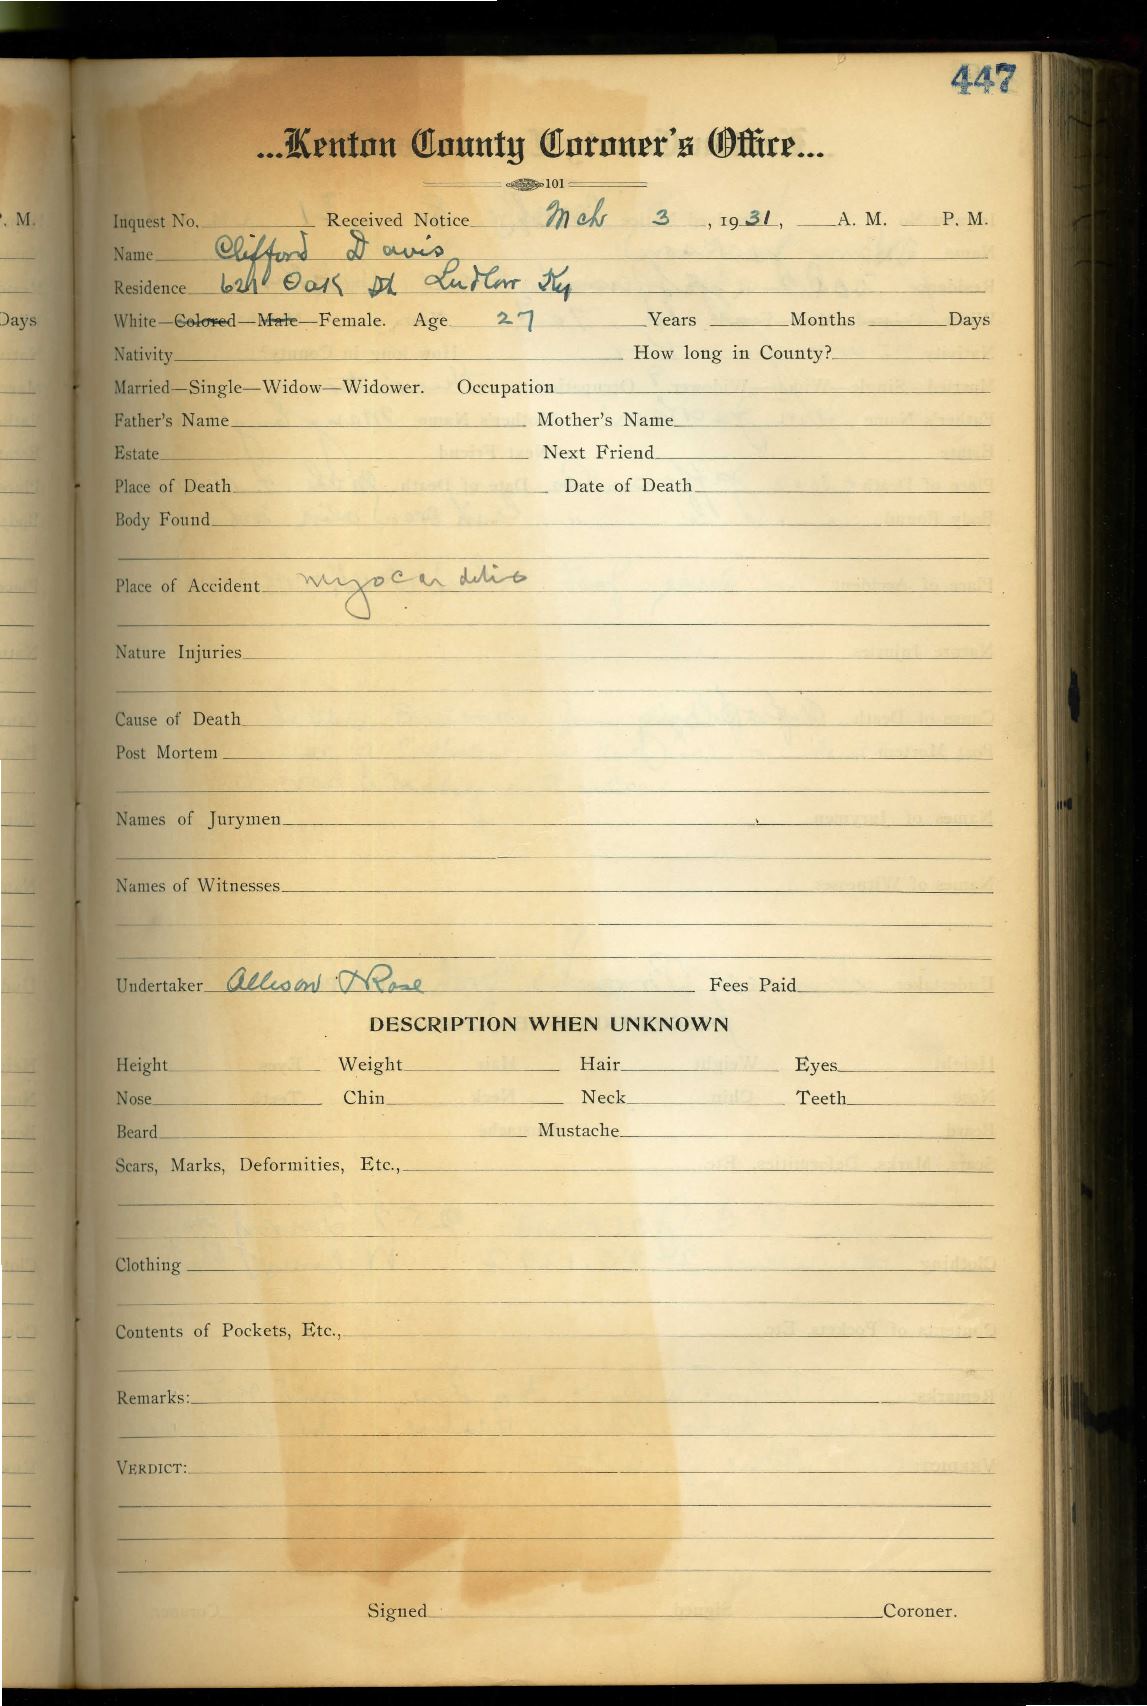 447
...Kenton County Coroner's Office...
101
Inquest No. Received Notice Mch 3, 1931, A. M. P. M.
Name Clifford Davis
Residence Oak St Ludlow Ky
White—Colored—Male—Female. Age 27 Years Months Days
Nativity How long in County?
Married—Single—Widow—Widower. Occupation
Father's Name Mother's Name
Estate Next Friend
Place of Death Date of Death
Body Found
Place of Accident myocarditis
Nature Injuries
Cause of Death
Post Mortem
Names of Jurymen
Names of Witnesses
Undertaker Allison & Rose Fees Paid
DESCRIPTION WHEN UNKNOWN
Height Weight Hair Eyes
Nose Chin Neck Teeth
Beard Mustache
Scars, Marks, Deformities, Etc.,
Clothing
Contents of Pockets, Etc.,
Remarks:
VERDICT:
Signed Coroner.
. M.
Days